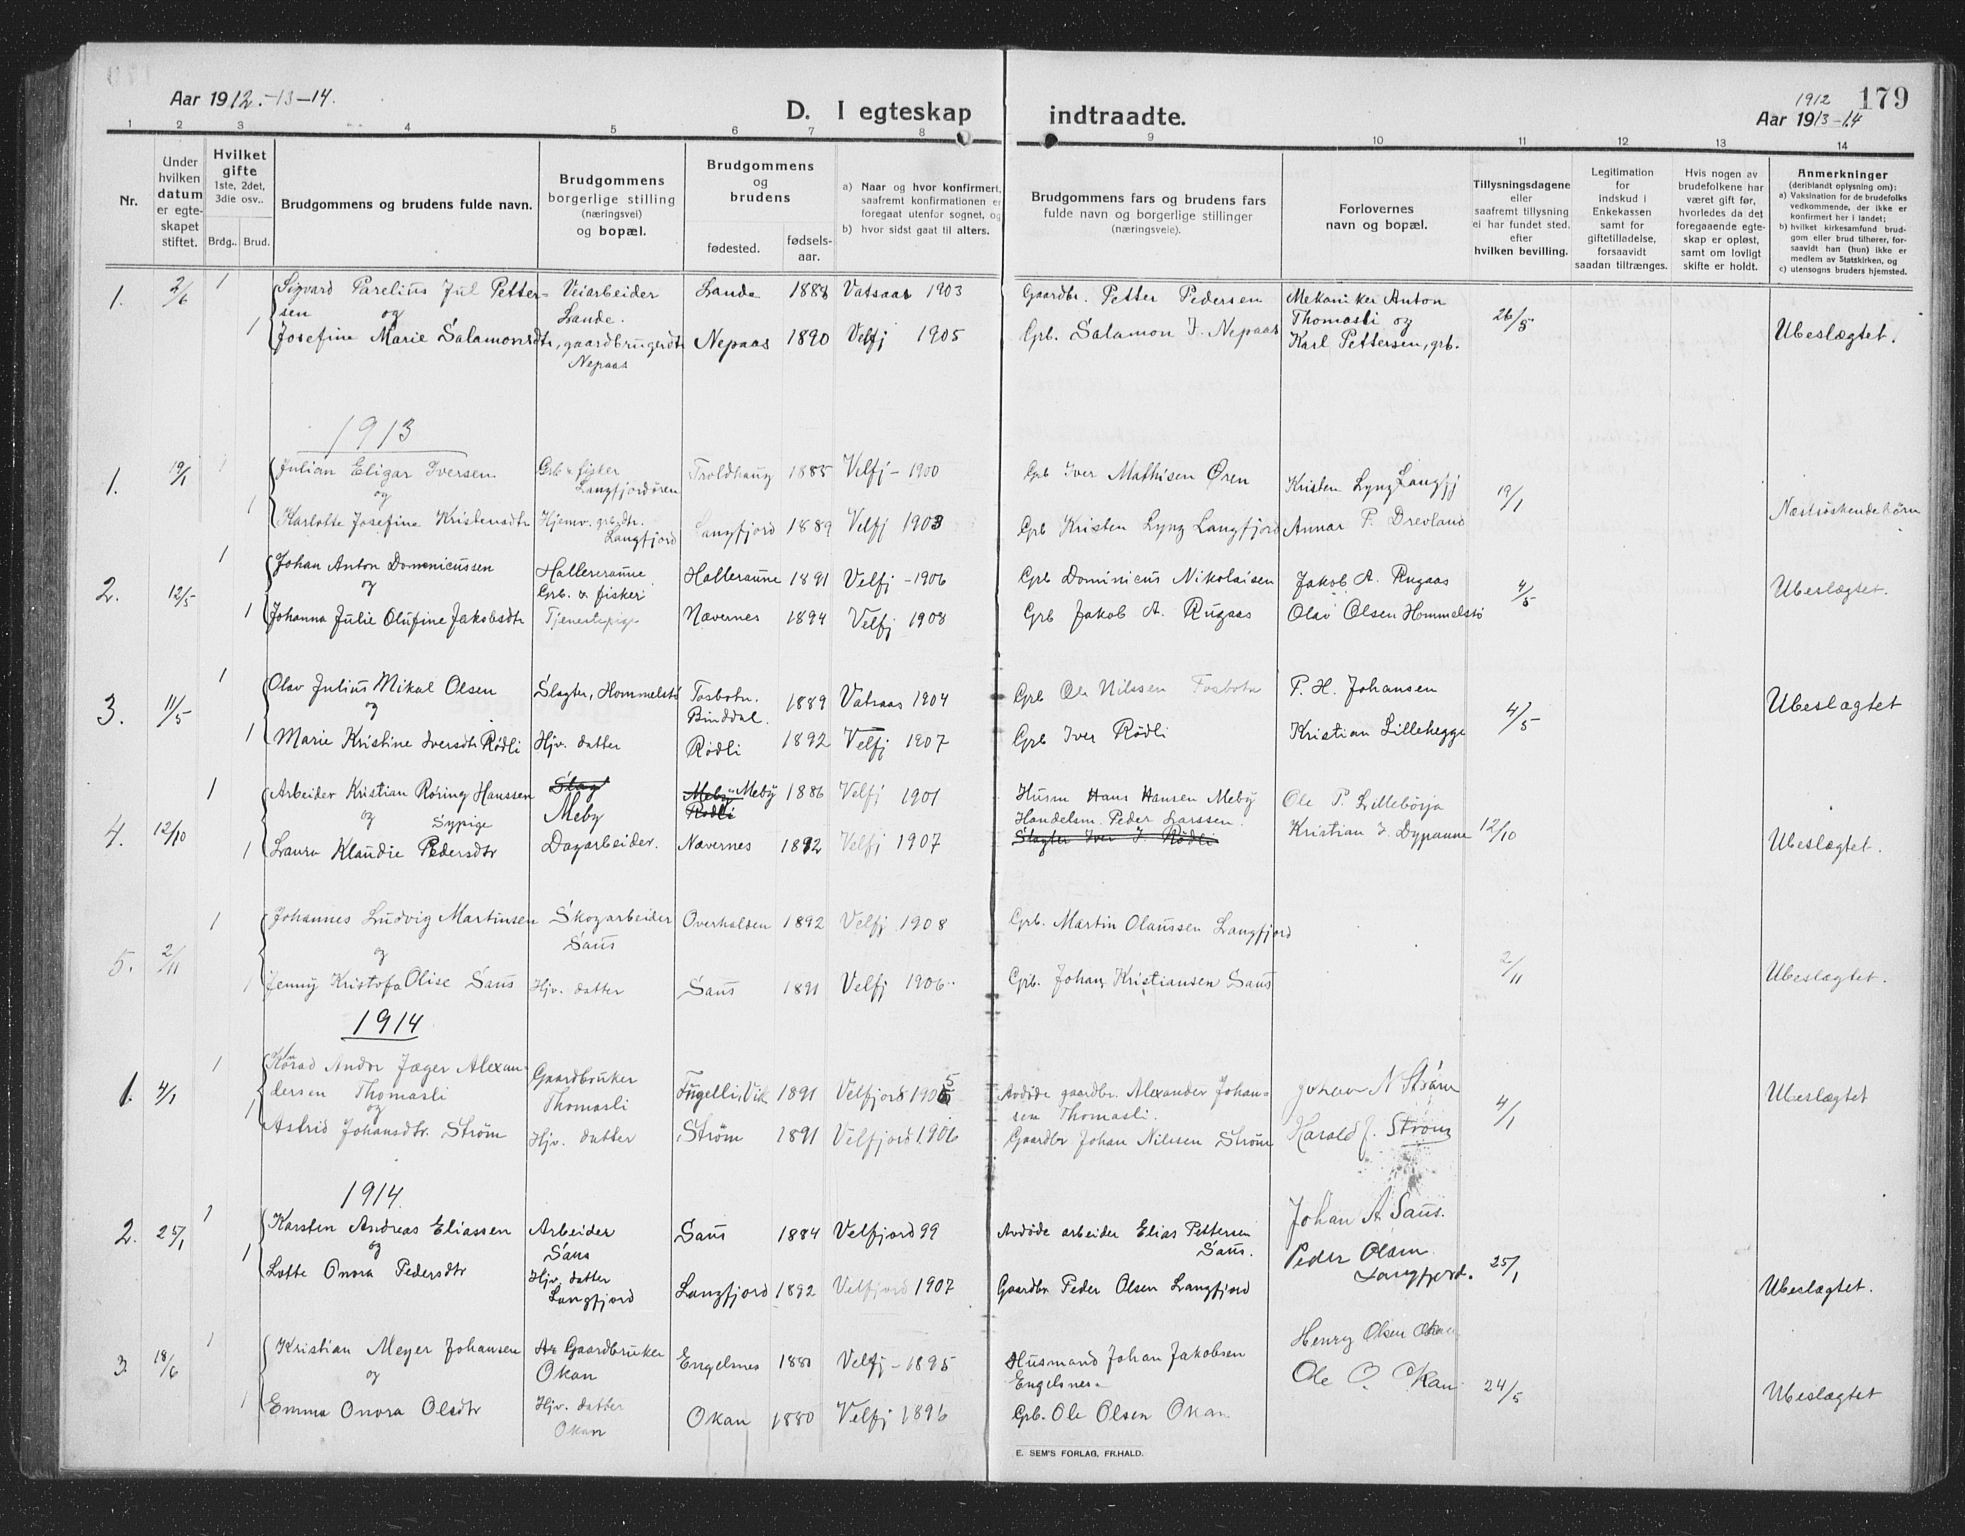 Aar 1912.-13-14.
D. I egteskap indtraadte.
1912
Aar 1913-14
179
1 2 3 4 5 6 7 8 9 10 11 12 13 14
Nr.
Under hvilken datum er egteskapet stiftet.
Hvilket gifte 1ste, 2det, 3die osv..
Brdg.. Brud.
Brudgommens og brudens fulde navn.
Brudgommens borgerlige stilling (næringsvei) og bopæl.
Brudgommens og brudens
fødested.
fødselsaar.
a) Naar og hvor konfirmert, saafremt konfirmationen er foregaat utenfor sognet, og
b) hvor sidst gaat til alters.
Brudgommens fars og brudens fars fulde navn og borgerlige stillinger (næringsveie).
Forlovernes navn og bopæl.
Tillysningsdagene eller saafremt tillysning ei har fundet sted, efter hvilken bevilling.
Legitimation for indskud i Enkekassen samt for giftetilladelse, forsaavidt saadan tiltrænges.
Hvis nogen av brudefolkene har været gift før, hvorledes da det foregaaende egteskap er opløst, samt om lovligt skifte er holdt.
Anmerkninger (deriblandt oplysning om): a) Vaksination for de brudefolks vedkommende, der ikke er konfirmert her i landet; b) hvilket kirkesamfund brudgom eller brud tilhører, forsaavidt han (hun) ikke er medlem av Statskirken, og c) utensogns bruders hjemsted.
1. 2/6 1 Sigvard Parelius Jul Pettersen Veiarbeider Lande. Lande 1888 Vatsaas 1903 Gaardbr. Petter Pedersen Mekaniker Anton Thomasli og 26/5
og
1 Josefine Marie Salamonsdtr, gaardbrugerdtr Nepaas Nepaas 1890 Velfj 1905 Grb. Salamon J. Nepaas Karl Pettersen, grb. Ubeslægtet.
1913
1. 19/1 1 Julian Eligar Iversen Grb & fisker Langfjordøren Troldhaug 1885 Velfj - 1900 Grb Iver Mathisen Øren Kristen Lynz Langfj 19/1
og
1 Karlotte Josefine Kristensdtr Hjemv. grbdtr. Langfjord Langfjord 1889 Velfj 1903 Grb Kristen Lynz Langfjord Annar P. Drevland Næstsøskendebørn
2. 12/5 1 Johan Anton Domenicussen Halleraune Grb. & fisker Halleraune 1891 Velfj - 1906 Grb Dominicus Nikolaisen Jakob A. Rugaas 4/5 Ubeslægtet.
og
1 Johanna Julie Olufine Jakobsdtr Tjenestepige Nævernes 1894 Velfj 1908 Grb Jakob A. Rugaas Olav Olsen Hommelstø
3. 11/5 1 Olav Julius Mikal Olsen Slagter, Hommelstø Tosbotn. Binddal. 1889 Vatsaas 1904 Grb Ole Nilssen Tosbotn P. H. Johansen 4/5 Ubeslægtet
og
1 Marie Kristine Iversdtr Rødli Hjv. datter Rødli 1892 Velfj 1907 Grb Iver Rødli Kristian Lillehegge
4. 12/10 1 Arbeider Kristian Røring Hanssen Slag Meby Meby Meby Rødli 1886 Velfj 1901 Husm Hans Hansen Meby Ole P. Lillebørja
og Sypige
1 Laura Klaudie Pedersdtr Dagarbeider. Nævernes 1892 Velfj 1907 Handelsm. Peder Larssen. Slagter Iver J. Rødli Kristian J. 12/10 Ubeslægtet.
5. 2/11 1 Johannes Ludvig Martinsen Skogarbeider Saus Overhalden 1892 Velfj 1908 Grb. Martin Olaussen Langfjord
og
1 Jenny Kristofa Olise Saus Hjv. datter Saus 1891 Velfj 1906. Grb. Johan Kristiansen Saus 2/11 Ubeslægtet.
1914
1. 4/1 1 Konrad Andr Jæger Alexandersen Thomasli Gaardbruker Thomasli Fugelli, Vik 1891 Velfjord 1905 Avdøde gaardbr. Alexander Johansen Thomasli. Johan N Strøm 4/1 Ubeslægtet
og
1 Astrid Johansdtr. Strøm Hjv. datter Strøm 1891 Velfjord 1906 Gaardbr Johan Nilssen Strøm Harald J. Strøm
1914.
2. 25/1 1 Karsten Andreas Eliassen Arbeider Saus Saus 1884 Velfjord 99 Avdøde arbeider Elias Pettersen Saus. Johan A Saus.
og
1 Lotte Onora Pedersdtr Hjv. datter Langfjord Langfjord 1892 Velfjord 1907 Gaardbr Peder Olsen Langfjord Peder Olsen Langfjord. 25/1 Ubeslægtet.
3. 18/6 1 Kristian Meyer Johansen Ar Gaardbruker Okan Engelsnes 1880 Velfj - 1895 Husmand Johan Jakobsen Engelsnes Henry Olsen Okan
og
1 Emma Onora Olsdtr Hjv. datter Okan Okan 1880 Velfj 1896 Grb. Ole Olsen Okan Ole O. Okan 24/5 Ubeslægtet
E. SEM'S FORLAG, FR.HALD.